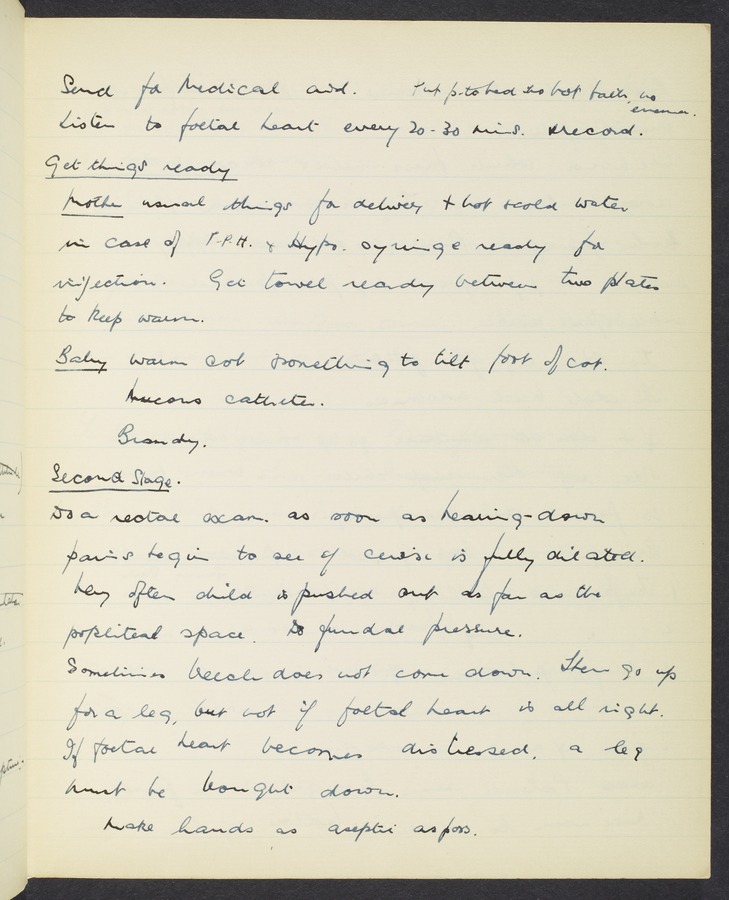 Send for Medical aid. Put p. to bed no hot bath, no enema.
Listen to foetal heart every 20-30 mins. & record.
Get things ready
Mother usual things for delivery + hot & cold water
in case of P.P.H. & Hypo. syringe ready for
injection. Get towel ready between two plates
to keep warm.
Baby warm cot & something to tilt foot of cot.
Mucous catheter.
Brandy.
Second Stage.
Do a rectal exam. as soon as bearing-down
pains begin to see if cervix is fully dilated.
Very often child is pushed out as far as the
popliteal space. fundal pressure.
Sometimes breech does not come down. Then go up
for a leg, but not if foetal heart is all right.
If foetal heart becomes distressed, a leg
must be bought down.
Make hands as aseptic as poss.